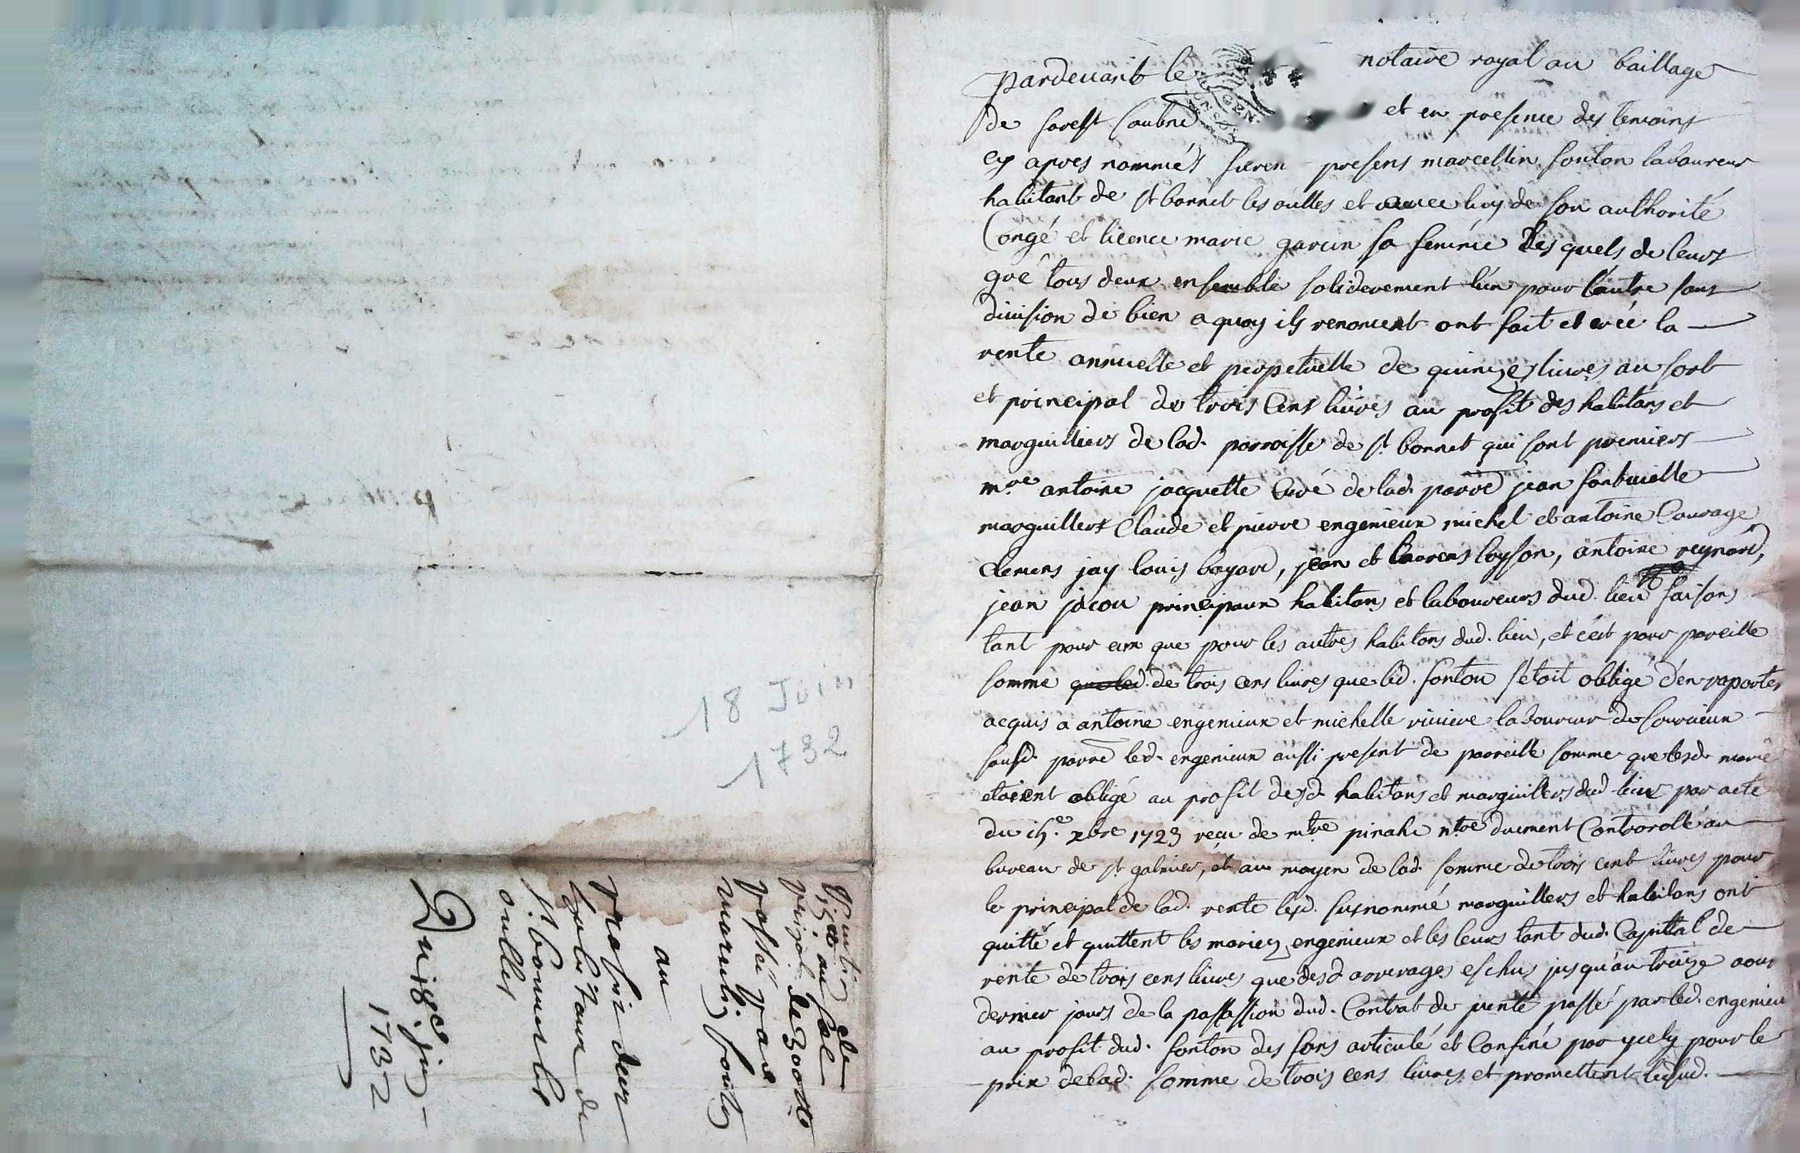 18 Juin
1732
pardevant le notaire royal au baillage
de forest soubné et en presence des temoins
cy apres nommés furen presens marcellin fonton laboureur
habitant de st bonnet les oulles et avec luy de son authorité
Congé et licence marie garcin sa femme lesquels de leurs
gré tous deux ensemble soliderement l'un pour l'autre sans
division de bien a quoy ils renoncent ont fait et créé la
rente annuelle et perpetuelle de quinze livres au sort
et principal de trois cens livres au profit des habitans et
marguilliers de lad. parroisse de st bonnet qui sont premiers
mre antoine jacquette Curé de lad. parre jean fontvielle
marguillers Claude et pierre engenieux michel et antoine Courage
clemens jay louis bayard, jean et laurens loyson, antoine reynard,
jean jacou principaux habitans et laboureurs dud. lieu faisans
tant pour eux que pour les autres habitans dud. lieu, et c'est pour pareille
somme de trois cens livres que led. fonton s'étoit obligé d'en raporter
acquis a antoine engenieux et michelle riviere laboureur de
susd. parre led. engenieux aussi present de pareille somme que lesd. marié
etoient obligé au profit desd. habitans et marguillers dud. lieu par acte
du xbre 1723 reçu de mtre pinahi ntre duement Controrollé au
bureau de st galmier, et au moyen de lad. somme de trois cent livres pour
le principal de lad. rente lesd. susnommé marguillers et habitans ont
quitté et quittent les mariez engenieux et les leurs tant dud. Capittal de
rente de trois cens livres que desd arrerages eschus jusqu'au treize aout
dernier jours de la passassion dud. Contrat de vente passé par led. engenieu
au profit dud. fonton des fons articulé et Confiné par ycely pour le
prix de lad. somme de trois cens livres et promettent lesud.
de
15 au
principal de 300
passé par
marcelin fonton
au
profit des
habitans de
st bonnet les
oulles
Du 18e juin
1732